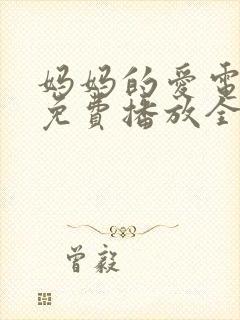 妈妈的爱電
免費播放全
曾毅